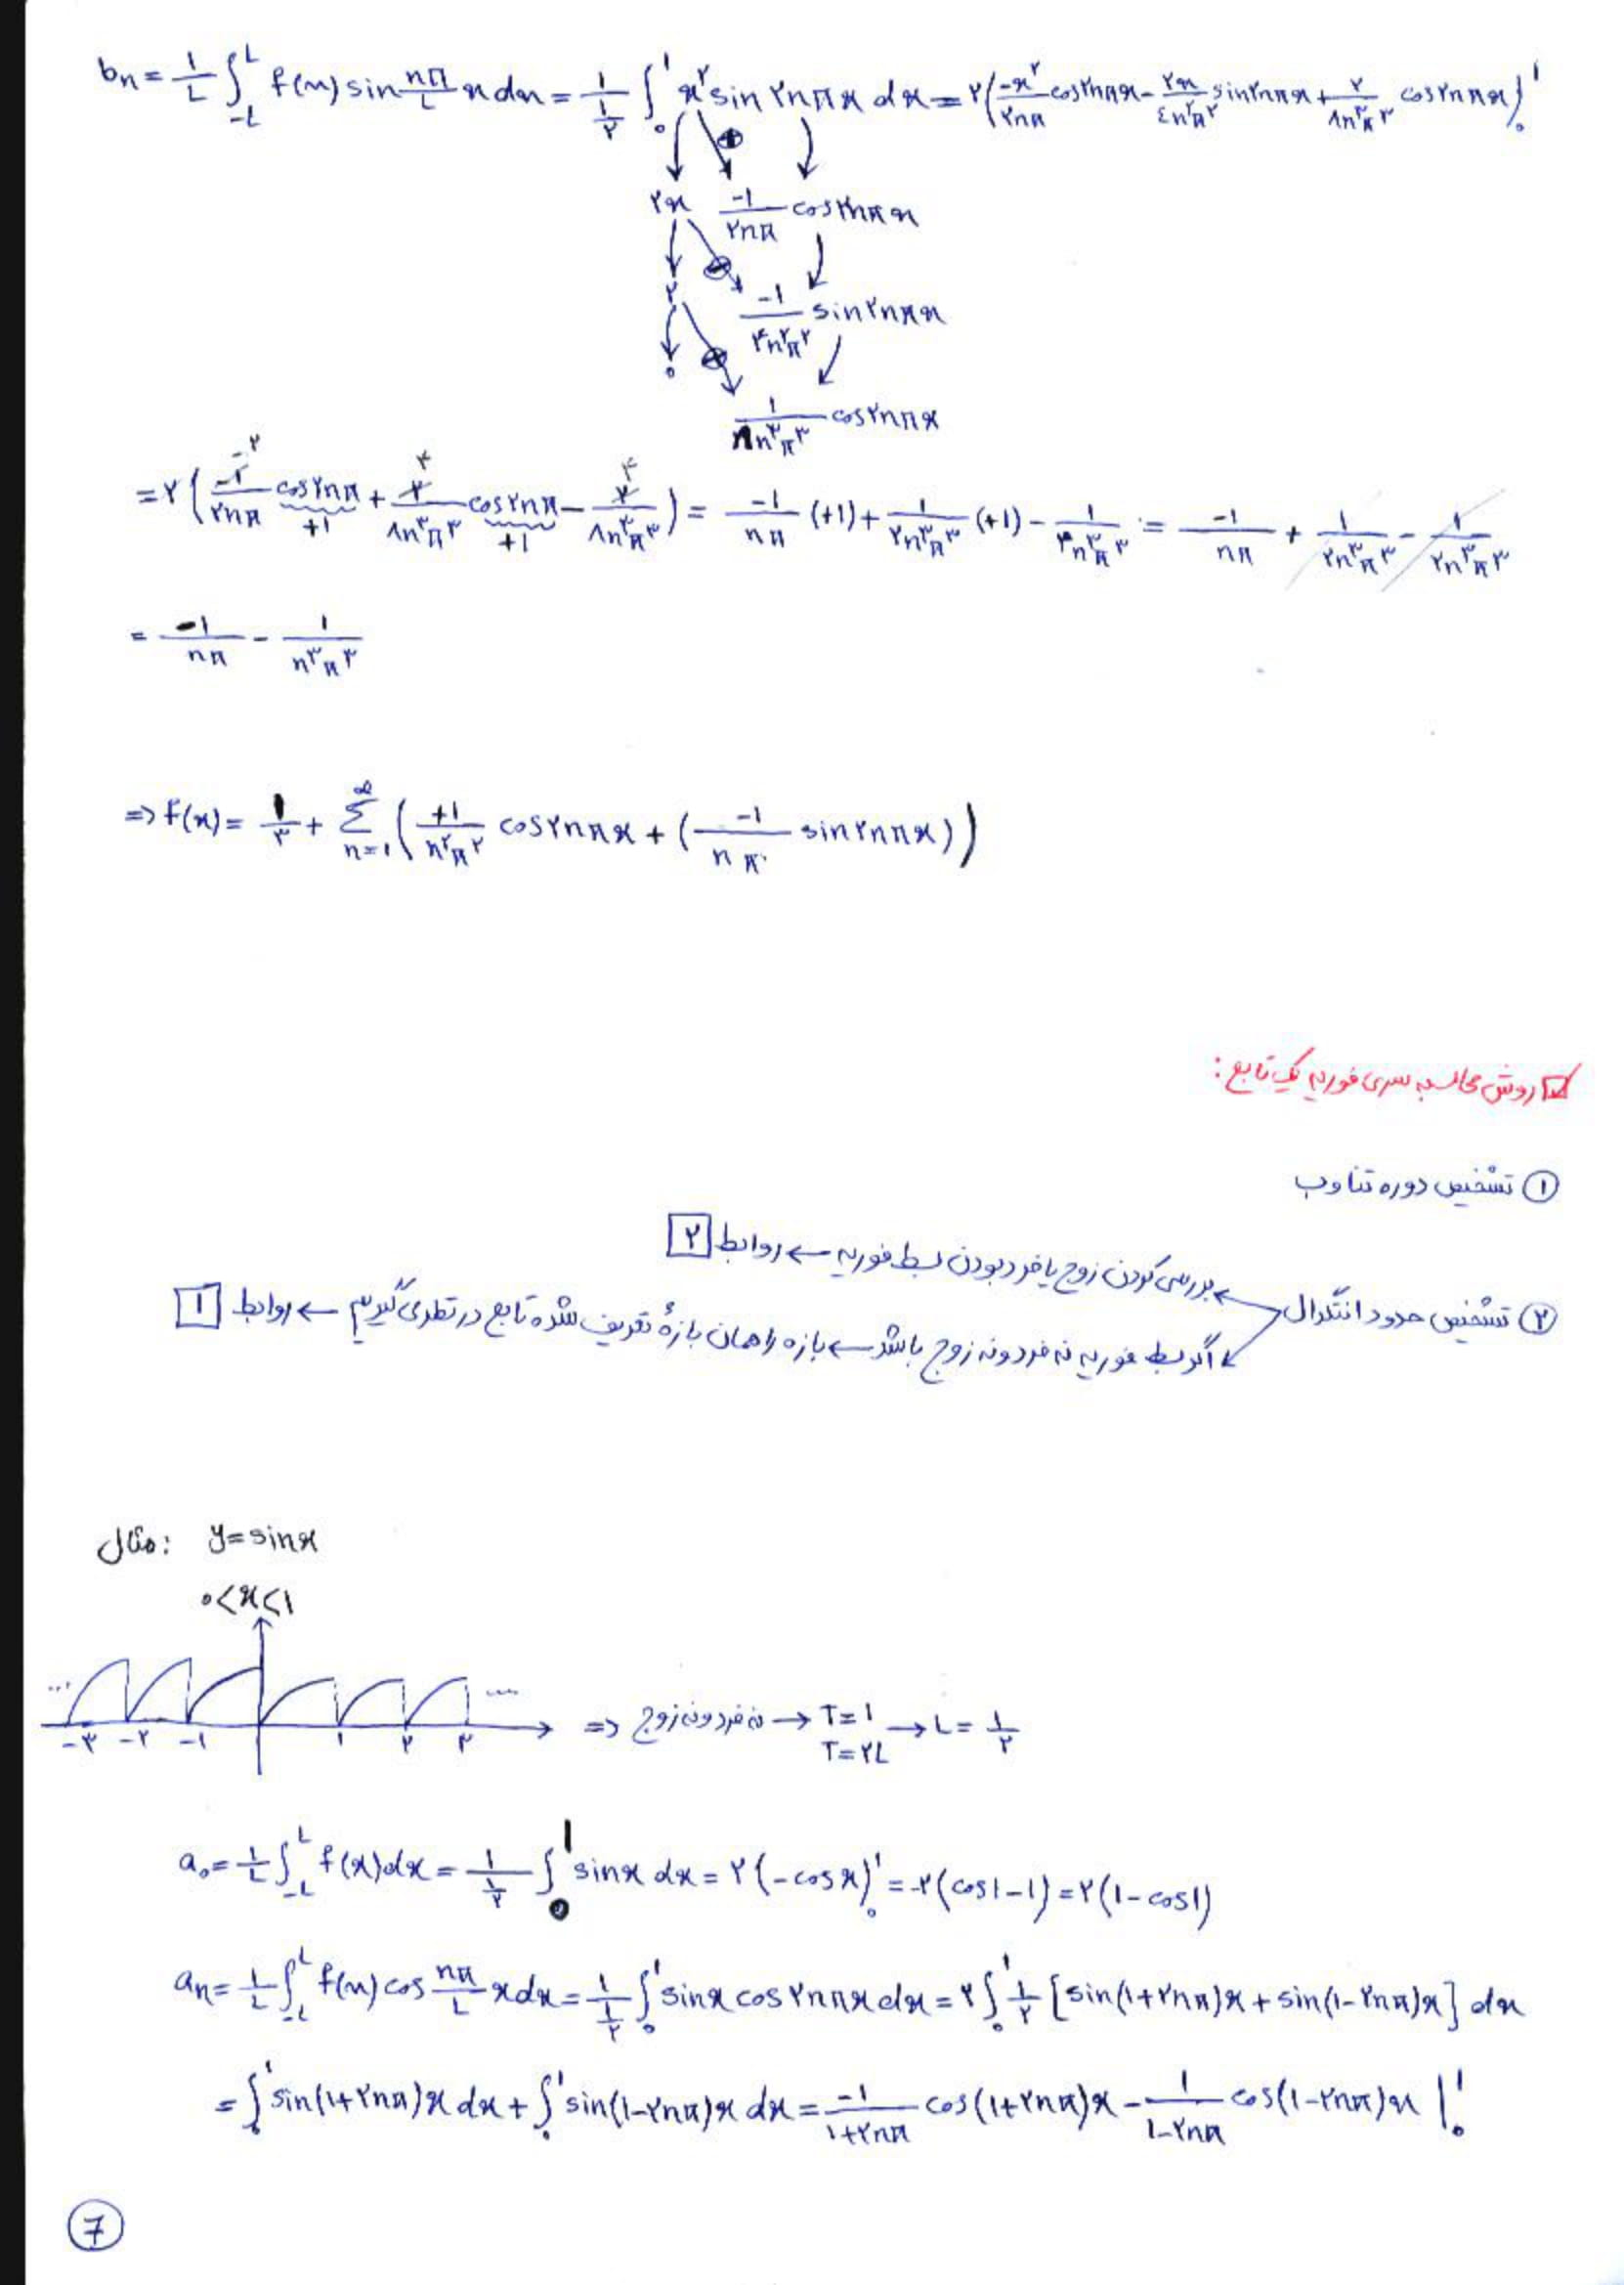 bn = ۱/L ∫_{-L}^{L} f(x) sin nπ/L x dx = ۱/(۱/۲) ∫_۰^۱ x^۲ sin ۲nπx dx = ۲(-x^۲/۲nπ cos۲nπx - ۲x/٤n^۲π^۲ sin۲nπx + ۲/۸n^۳π^۳ cos۲nπx)_۰^۱
⊕
۲x -۱/۲nπ cos۲nπx
۲ -۱/۴n^۲π^۲ sin۲nπx
۰ ۱/۸n^۳π^۳ cos۲nπx
= ۲( -۱/۲nπ cos۲nπ + ۲/۸n^۳π^۳ cos۲nπ - ۲/۸n^۳π^۳ ) = -۱/nπ (+۱) + ۱/۲n^۳π^۳ (+۱) - ۱/۲n^۳π^۳ = -۱/nπ + ۱/۲n^۳π^۳ - ۱/۲n^۳π^۳
+۱ +۱
= -۱/nπ - ۱/n^۳π^۳
⇒ f(x) = ۱/۳ + Σ_{n=۱}^{∞} ( +۱/n^۲π^۲ cos۲nπx + ( -۱/nπ sin۲nπx ) )
روش محاسبه سری فوریه یک تابع :
① تشخیص دوره تناوب
② تشخیص حدود انتگرال
بررسی کردن زوج یا فرد بودن بسط فوریه ← روابط ۲
اگر بسط فوریه نه فرد و نه زوج باشد ← بازه را همان بازهٔ تعریف شده تابع در نظر می گیریم ← روابط ۱
مثال: y = sinx
۰<x<۱
... -۳ -۲ -۱ ۱ ۲ ۳ ... ⇒ نه فرد و نه زوج → T=۱ T=۲L → L = ۱/۲
a۰ = ۱/L ∫_{-L}^{L} f(x)dx = ۱/(۱/۲) ∫_۰^۱ sinx dx = ۲(-cosx)_۰^۱ = -۲(cos۱-۱) = ۲(۱-cos۱)
an = ۱/L ∫_{-L}^{L} f(x) cos nπ/L x dx = ۱/(۱/۲) ∫_۰^۱ sinx cos۲nπx dx = ۲ ∫_۰^۱ ۱/۲ [sin(۱+۲nπ)x + sin(۱-۲nπ)x] dx
= ∫_۰^۱ sin(۱+۲nπ)x dx + ∫_۰^۱ sin(۱-۲nπ)x dx = -۱/۱+۲nπ cos(۱+۲nπ)x - ۱/۱-۲nπ cos(۱-۲nπ)x |_۰^۱
7